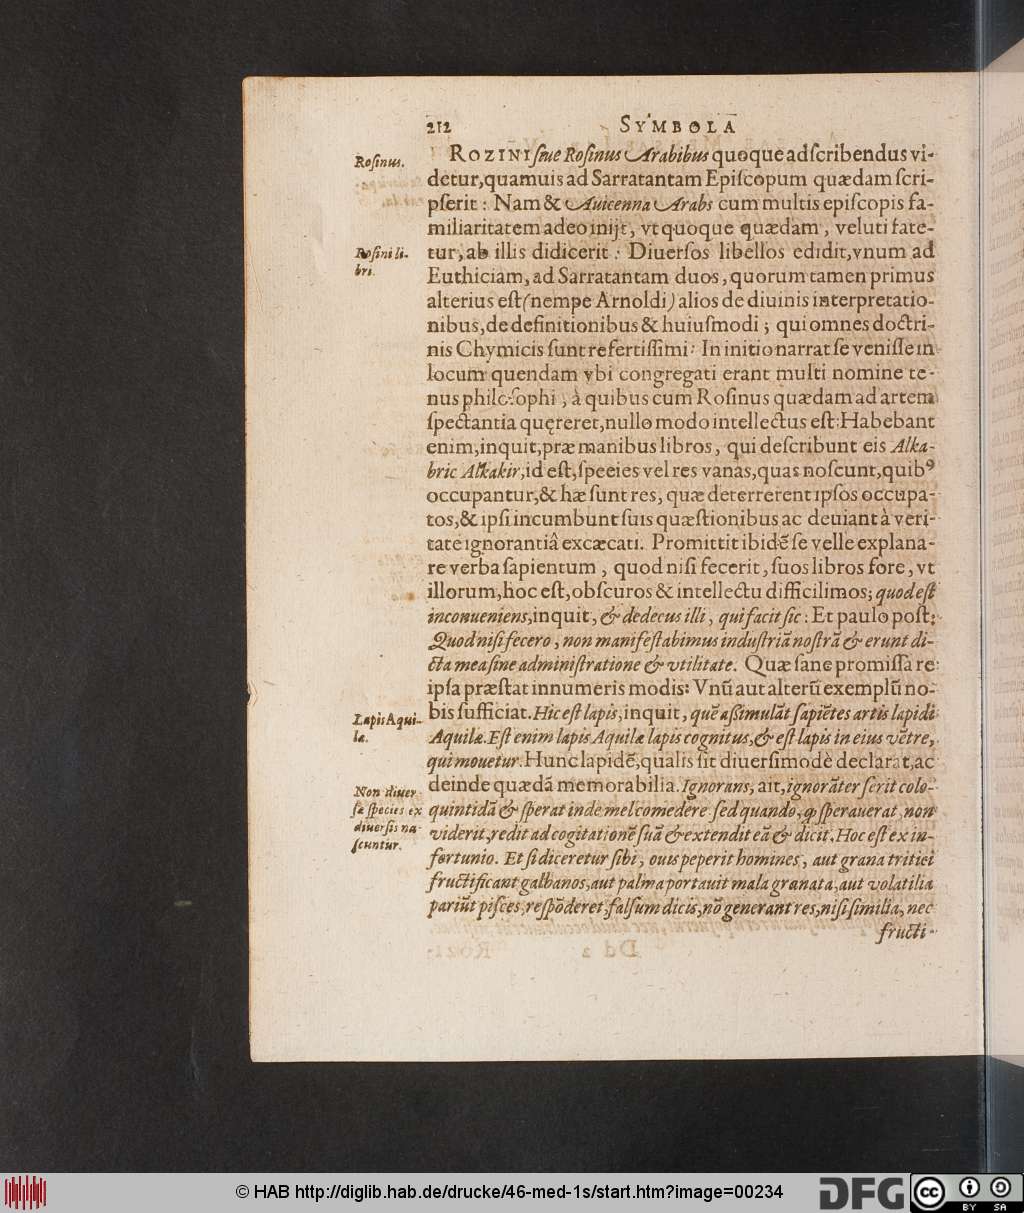 212 SYMBOLA
Rosinus.
ROZINI siue Rosinus Arabibus quoque adscribendus vi-
detur, quamuis ad Sarratantam Episcopum quædam scri-
pserit: Nam & Auicenna Arabs cum multis episcopis fa-
miliaritatem adeo inijt, vt quoque quædam, veluti fate-
Rosini li-
bri.
tur, ab illis didicerit: Diuersos libellos edidit, vnum ad
Euthiciam, ad Sarratantam duos, quorum tamen primus
alterius est (nempe Arnoldi) alios de diuinis interpretatio-
nibus, de definitionibus & huiusmodi; qui omnes doctri-
nis Chymicis sunt refertissimi: In initio narrat se venisse in
locum quendam vbi congregati erant multi nomine te-
nus philosophi, à quibus cum Rosinus quædam ad artem
spectantia quęreret, nullo modo intellectus est: Habebant
enim, inquit, præ manibus libros, qui describunt eis Alka-
bric Alkakir, id est, speeies vel res vanas, quas noscunt, quibꝰ
occupantur, & hæ sunt res, quæ deterrerent ipsos occupa-
tos, & ipsi incumbunt suis quæstionibus ac deuiant à veri-
tate ignorantiâ excæcati. Promittit ibidē se velle explana-
re verba sapientum, quod nisi fecerit, suos libros fore, vt
illorum, hoc est, obscuros & intellectu difficilimos; quod est
inconueniens, inquit, & dedecus illi, qui facit sic: Et paulo post:
Quod nisi fecero, non manifestabimus industriā nostrā & erunt di-
cta mea sine administratione & vtilitate. Quæ sane promissa re
ipsa præstat innumeris modis: Vnū aut alterū exemplū no-
Lapis Aqui-
læ.
bis sufficiat. Hic est lapis, inquit, quē assimulāt sapiētes artis lapidi
Aquilæ. Est enim lapis Aquilæ lapis cognitus, & est lapis in eius vētre,
qui mouetur. Hunc lapidē, qualis sit diuersimodè declarat, ac
deinde quædā memorabilia. Ignorans, ait, ignorāter serit colo-
Non diuer-
sæ species ex
diuersis na-
scuntur.
quintidā & sperat inde mel comedere sed quando, ꝙ sperauerat, non
viderit, redit ad cogitationē suā & extendit eā & dicit. Hoc est ex in-
fortunio. Et si diceretur sibi, ouis peperit homines, aut grana tritici
fructificant galbanos, aut palma portauit mala granata, aut volatilia
pariūt pisces, respōderet, falsum dicis, nō generant res, nisi similia, nec
fructi-
© HAB http://diglib.hab.de/drucke/46-med-1s/start.htm?image=00234
DFG
cc
BY SA